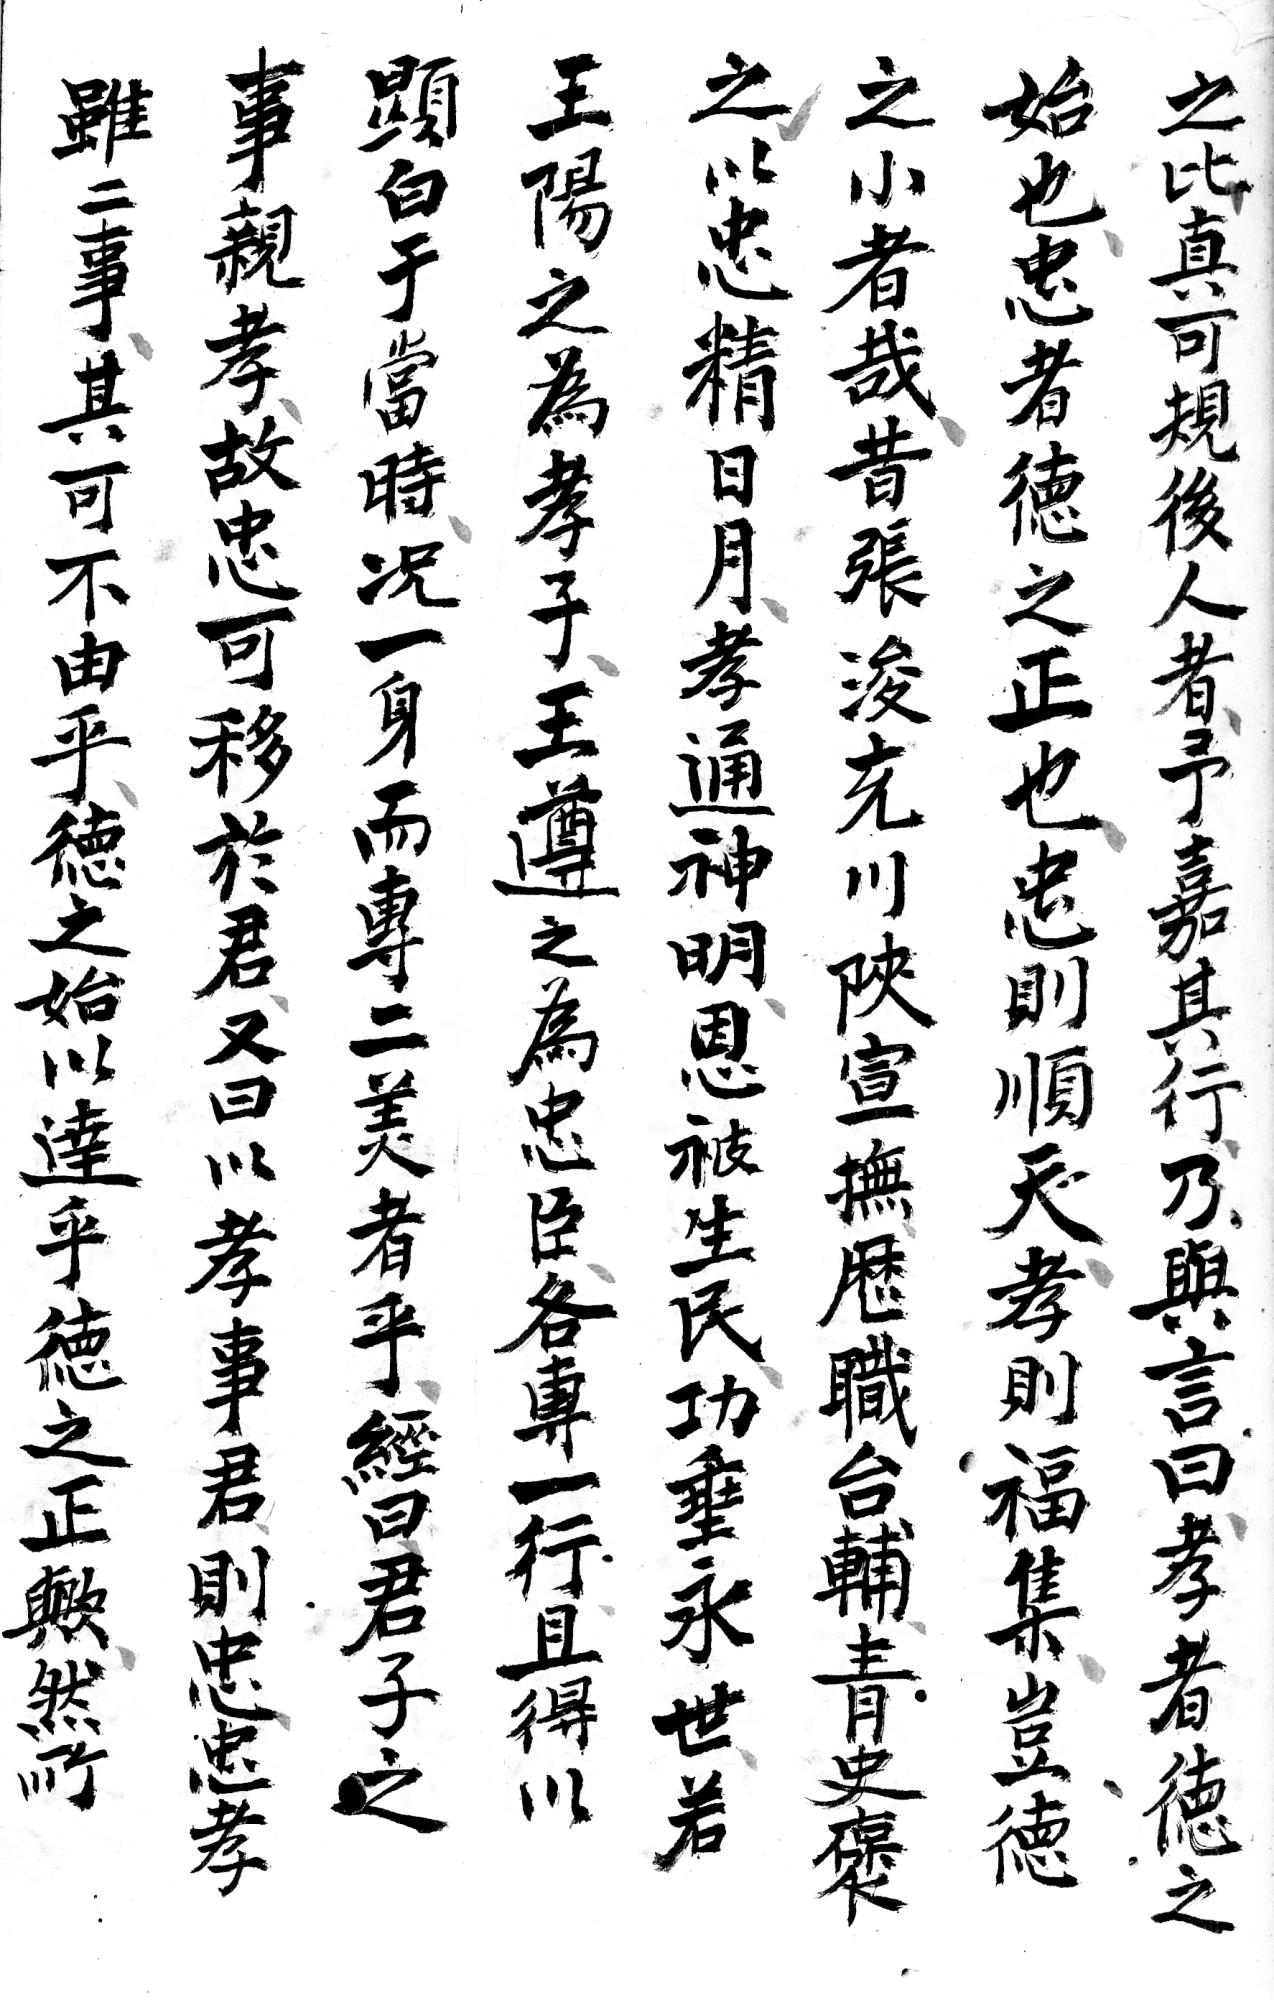 之比真可規後人者予嘉其行乃與言曰孝者德之
始也忠者德之正也忠則順天孝則福集豈德
之小者哉昔張浚充川陝宣撫歷職台輔青史褒
之以忠精日月孝通神明恩被生民功垂永世若
王陽之為孝子王遵之為忠臣各專一行且得以
顕白于當時况一身而專二美者乎經曰君子之
事親孝故忠可移於君又曰以孝事君則忠忠孝
雖二事其可不由乎德之始以達乎德之正歟然所